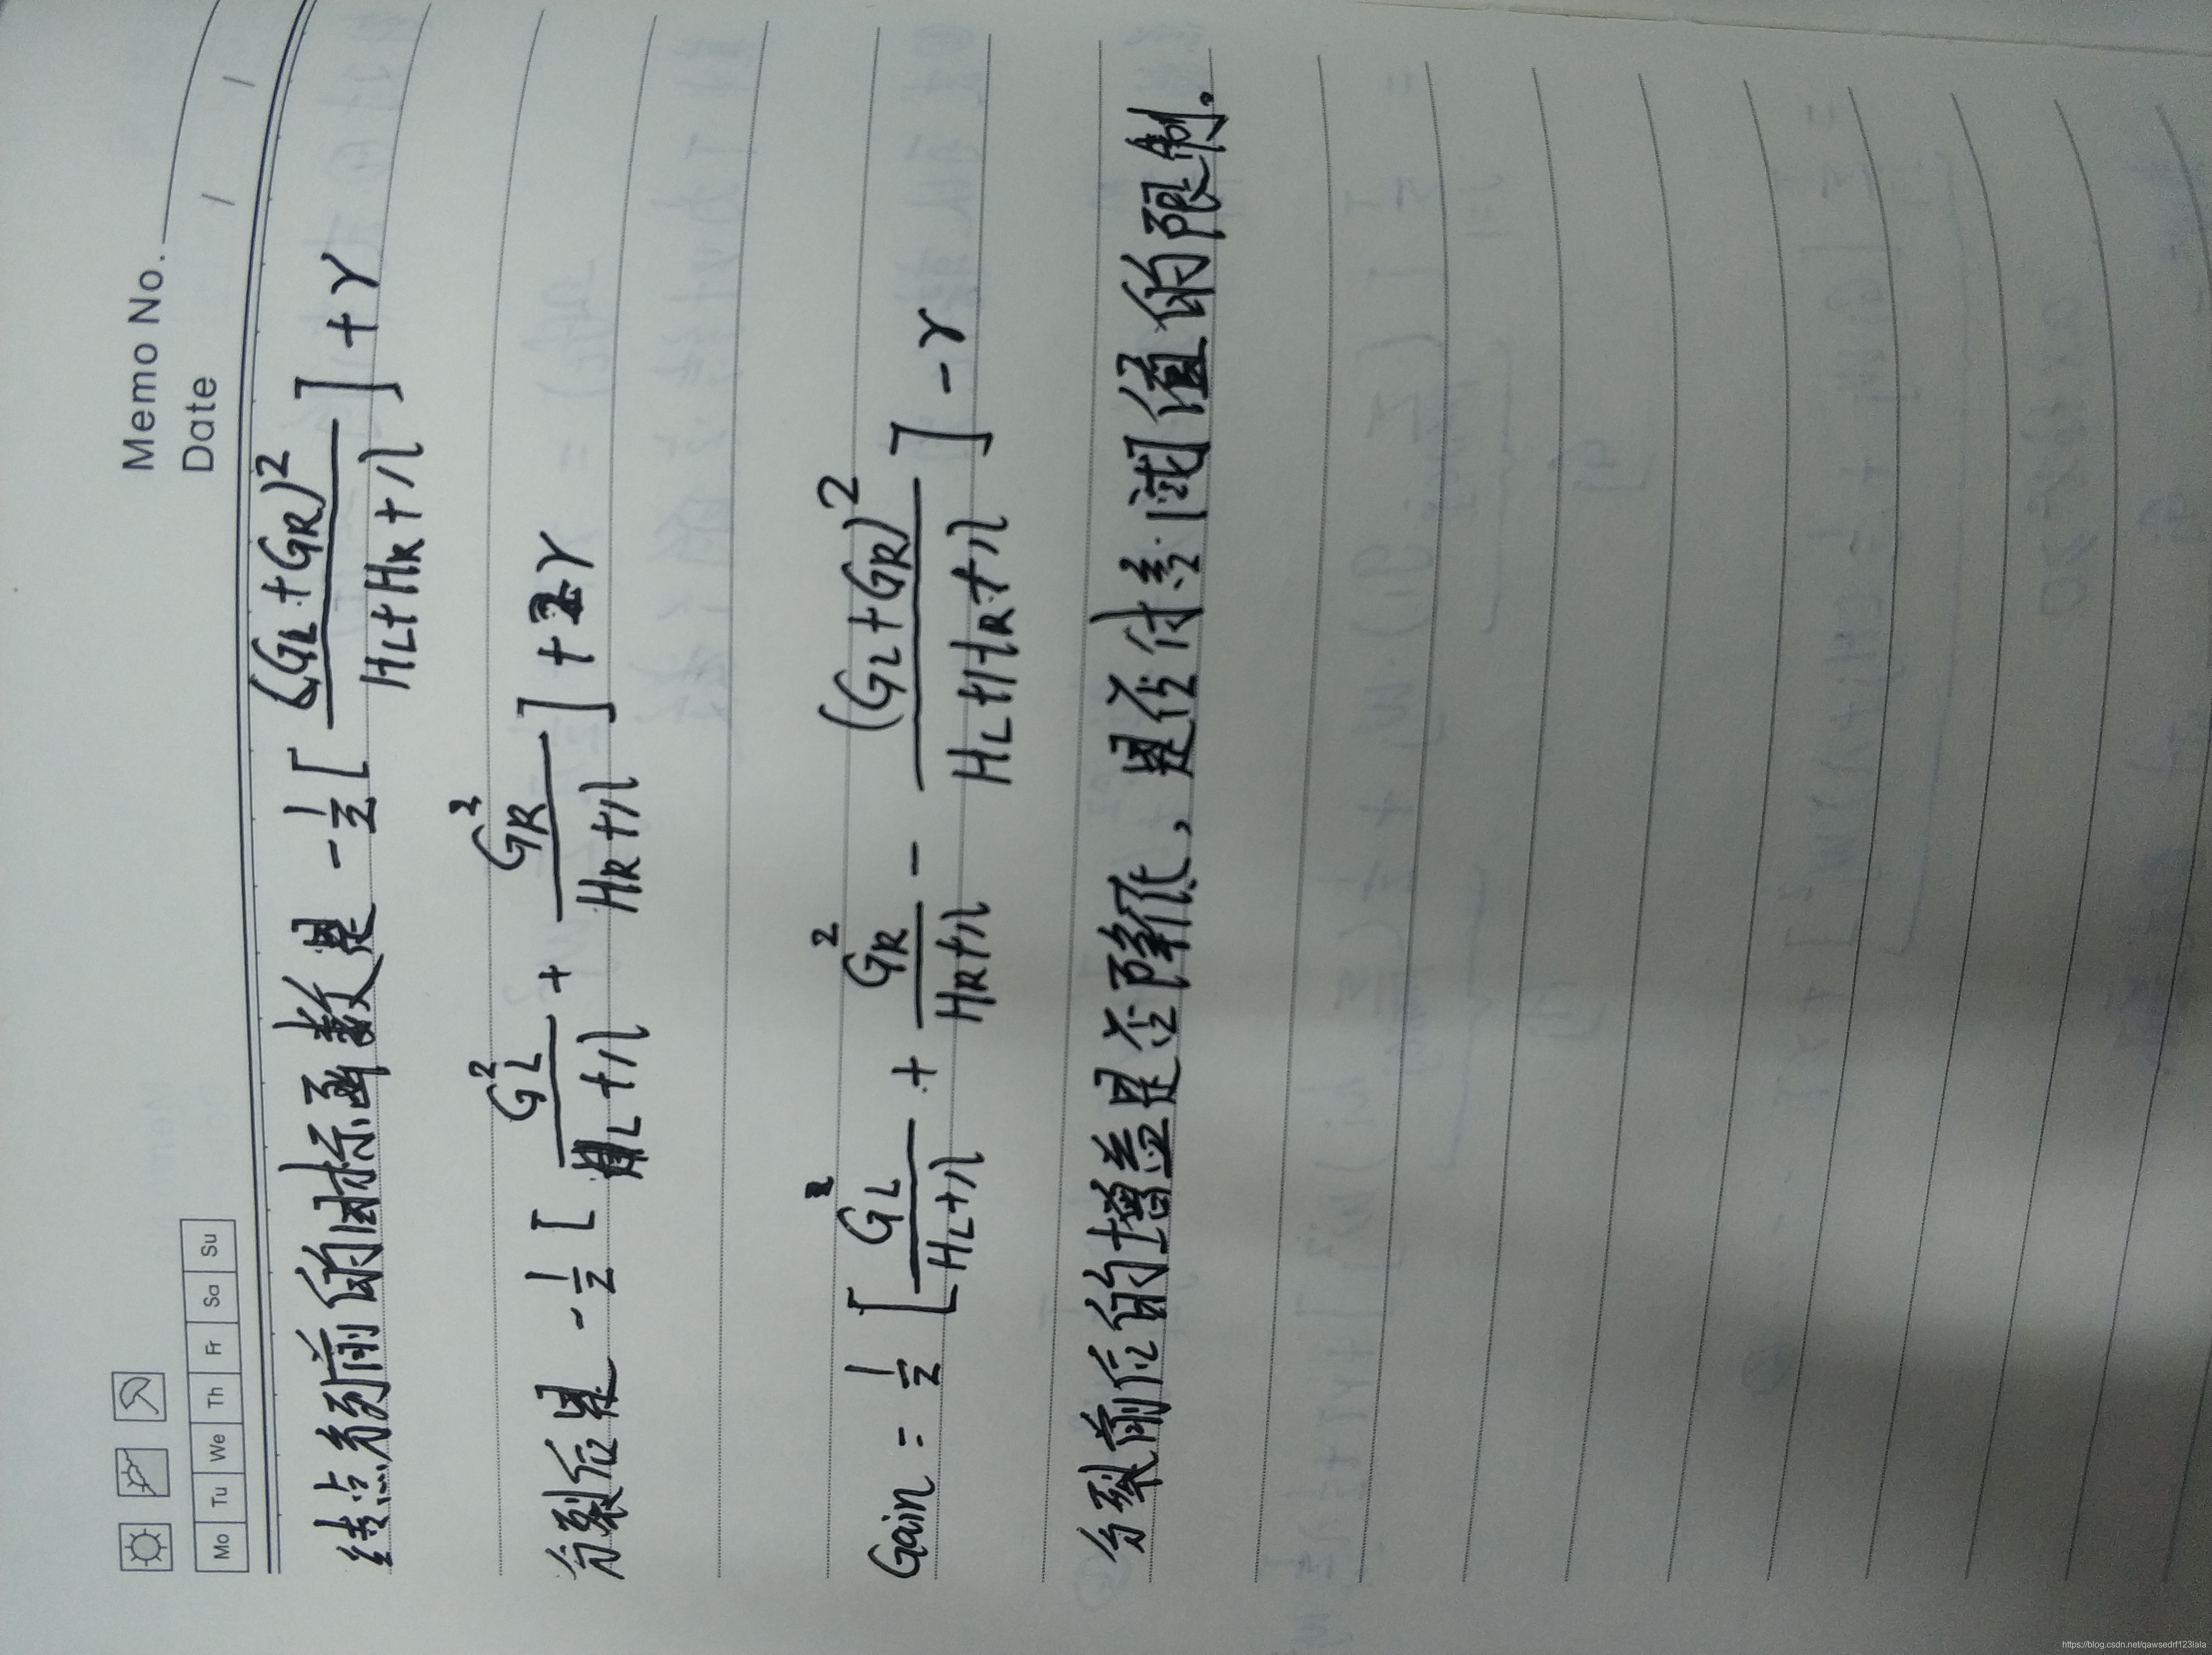 Memo No.
Mo Tu We Th Fr Sa Su
Date / /
结点分列前的目标函数是 -1/2 [ (GL+GR)^2 / (HL+HR+λ) ] + γ
分裂后是 -1/2 [ GL^2 / (HL+λ) + GR^2 / (HR+λ) ] + 2γ
Gain = 1/2 [ GL^2 / (HL+λ) + GR^2 / (HR+λ) - (GL+GR)^2 / (HL+HR+λ) ] - γ
分裂前后的增益是否降低,是否付差阈值的限制。
https://blog.csdn.net/qawsedrf123lala